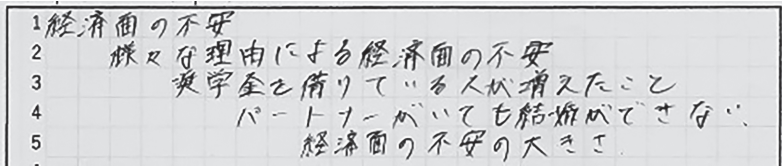 1 経済面の不安
2 様々な理由による経済面の不安
3 奨学金を借りている人が増えたこと
4 パートナーがいても結婚ができない、
5 経済面の不安の大きさ